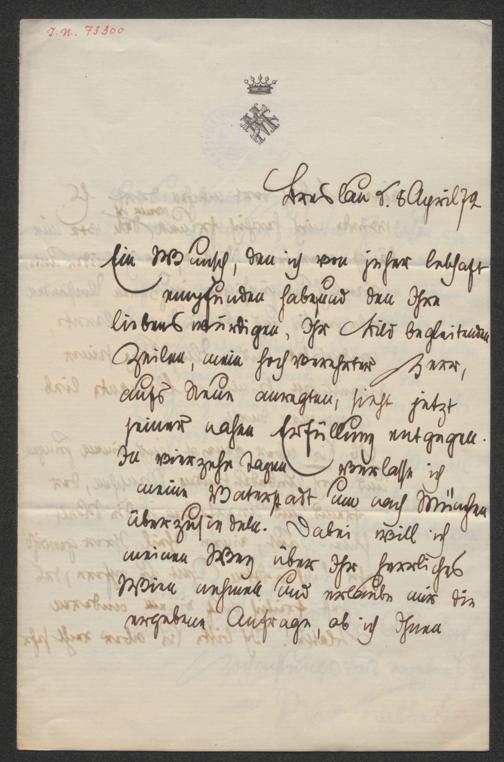 I.N. 73300
Breslau d. 8 April 72
Ein Wunsch, den ich von jeher lebhaft
empfunden habe und den Ihre
liebenswürdigen, Ihr Bild begleitenden
Zeilen, mein hochverehrter Herr,
aufs Neue anregten, sieht jetzt
seiner nahen Erfüllung entgegen.
In vierzehn Tagen verlasse ich
meine Vaterstadt um nach München
überzusiedeln. Dabei will ich
meinen Weg über Ihr herrliches
Wien nehmen und erlaube mir die
ergebene Anfrage, ob ich Ihnen